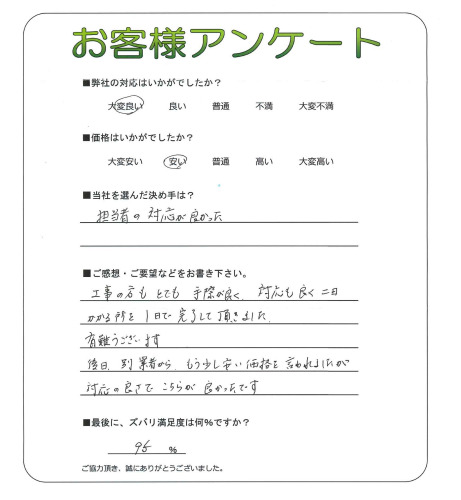 お客様アンケート
■弊社の対応はいかがでしたか？
大変良い 良い 普通 不満 大変不満
■価格はいかがでしたか？
大変安い 安い 普通 高い 大変高い
■当社を選んだ決め手は？
担当者の対応が良かった
■ご感想・ご要望などをお書き下さい。
工事の方もとても手際が良く、対応も良く二日
かかる所を1日で完了して頂きました
有難うございます
後日、別業者から、もう少し安い価格を言われましたが
対応の良さでこちらが良かったです
■最後に、ズバリ満足度は何％ですか？
95 ％
ご協力頂き、誠にありがとうございました。